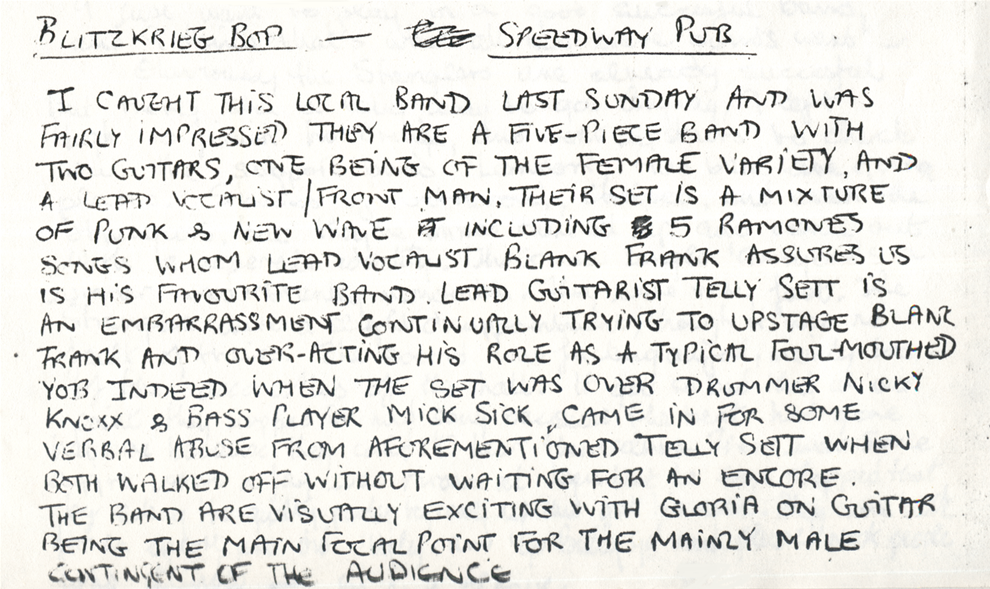 BLITZKRIEG BOP — SPEEDWAY PUB
I CAUGHT THIS LOCAL BAND LAST SUNDAY AND WAS
FAIRLY IMPRESSED THEY ARE A FIVE-PIECE BAND WITH
TWO GUITARS, ONE BEING OF THE FEMALE VARIETY, AND
A LEAD VOCALIST/FRONT MAN. THEIR SET IS A MIXTURE
OF PUNK & NEW WAVE INCLUDING 5 RAMONES
SONGS WHOM LEAD VOCALIST BLANK FRANK ASSURES US
IS HIS FAVOURITE BAND. LEAD GUITARIST TELLY SETT IS
AN EMBARRASSMENT CONTINUALLY TRYING TO UPSTAGE BLANK
FRANK AND OVER-ACTING HIS ROLE AS A TYPICAL FOUL-MOUTHED
YOB INDEED WHEN THE SET WAS OVER DRUMMER NICKY
KNOXX & BASS PLAYER MICK SICK, CAME IN FOR SOME
VERBAL ABUSE FROM AFOREMENTIONED TELLY SETT WHEN
BOTH WALKED OFF WITHOUT WAITING FOR AN ENCORE
THE BAND ARE VISUALLY EXCITING WITH GLORIA ON GUITAR
BEING THE MAIN FOCAL POINT FOR THE MAINLY MALE
CONTINGENT OF THE AUDIENCE